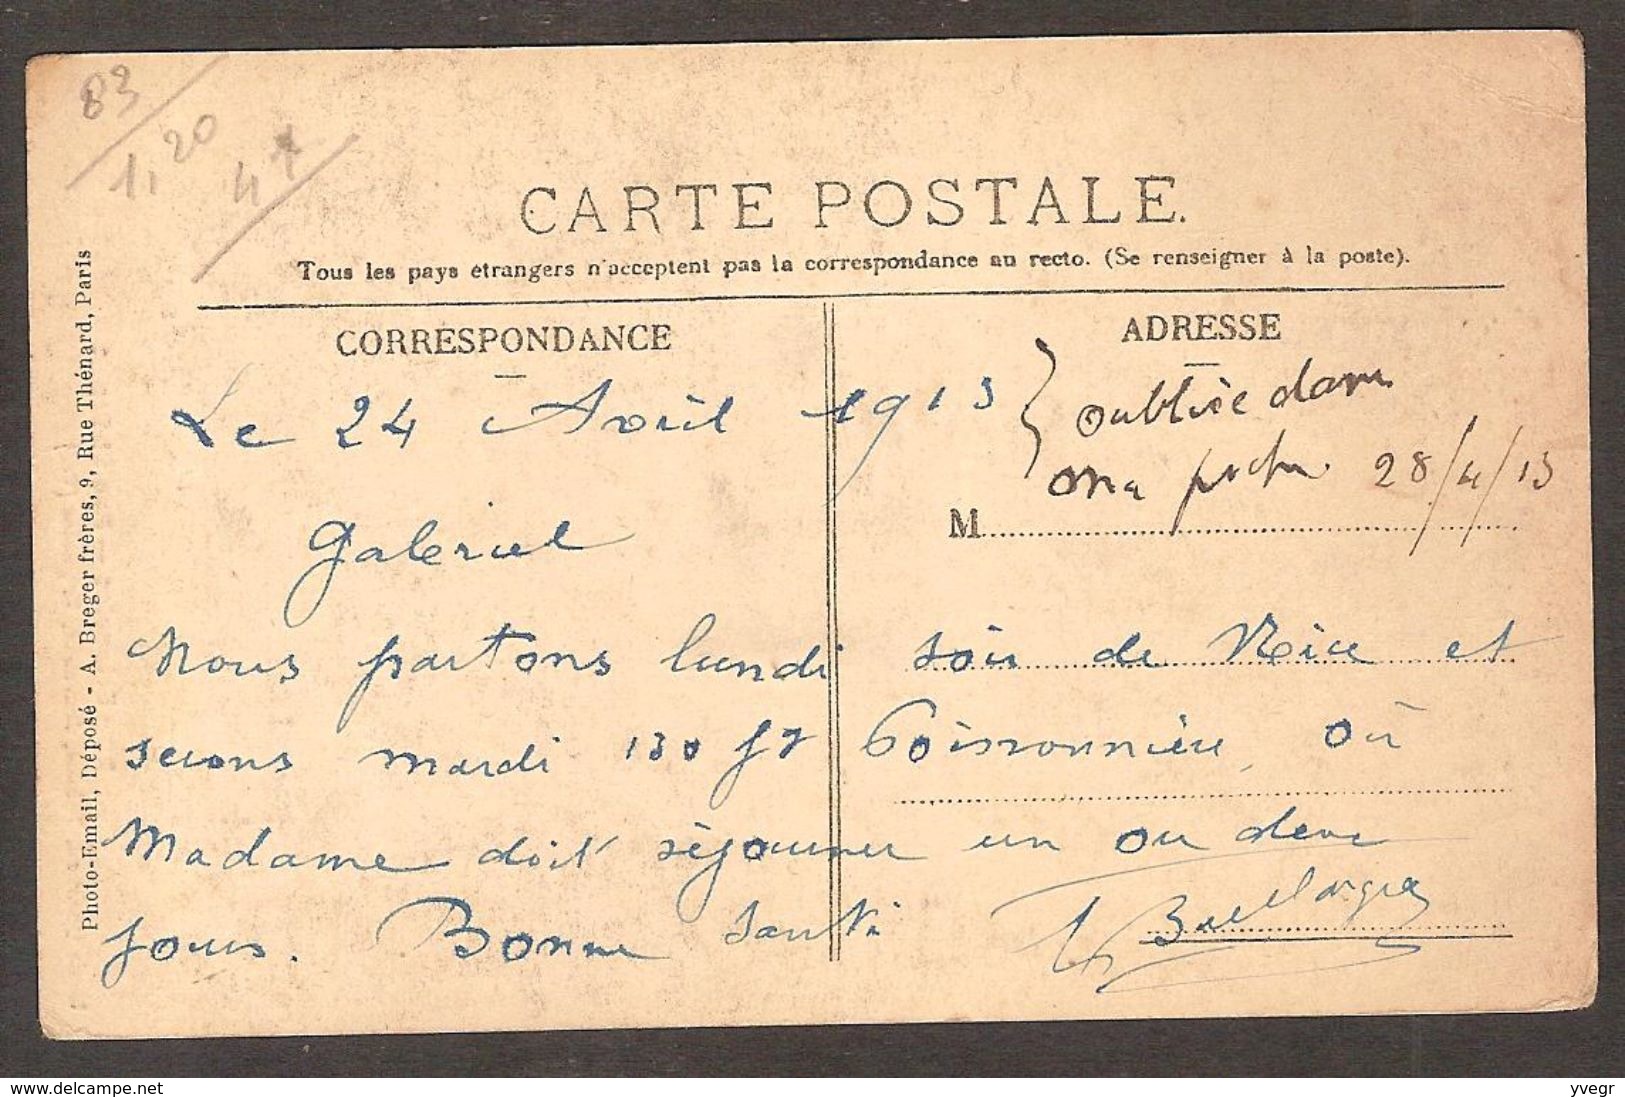 83
1,20
CARTE POSTALE.
Tous les pays étrangers n'acceptent pas la correspondance au recto. (Se renseigner à la poste).
CORRESPONDANCE
ADRESSE
Photo-Email, Déposé - A. Breger frères, 9, Rue Thénard, Paris
oubliée dans
ma poche 28/4/13
M
Le 24 Avril 1913
Gabriel
Nous partons lundi soir de Nice et
serons mardi 130 fg Poissonnière, où
Madame doit séjourner un ou deux
jours. Bonne santé
delcampe.net
yvegr